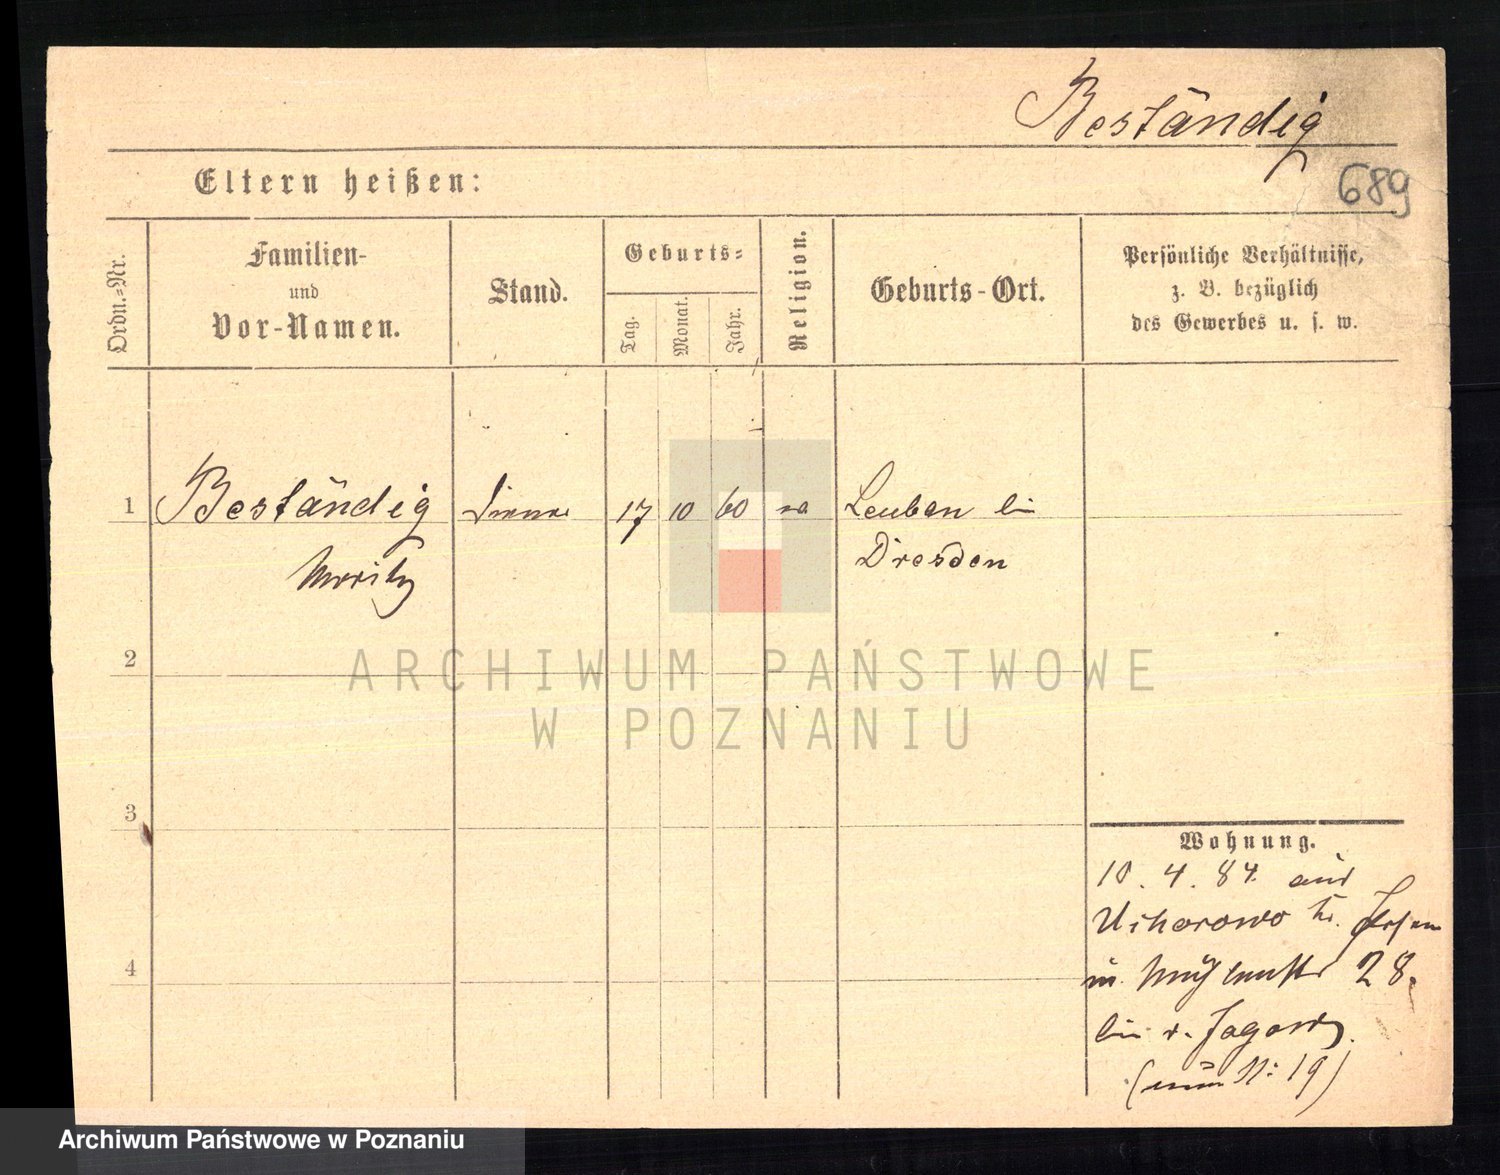 Beständig
689
Eltern heißen:
Ordn.-Nr.
Familien-
und
Vor-Namen.
Stand.
Geburts-
Tag.
Monat.
Jahr.
Religion.
Geburts-Ort.
Persönliche Verhältnisse,
z. B. bezüglich
des Gewerbes u. s. w.
1 Beständig Diener 17 10 60 Leuben bei
Moritz Dresden
2
3
4
Wohnung.
10.4.84 aus
Ucharowo
n. Mühlenstr 28.
bei v. Jagow.
(nun N: 19)
ARCHIWUM PAŃSTWOWE
W POZNANIU
Archiwum Państwowe w Poznaniu